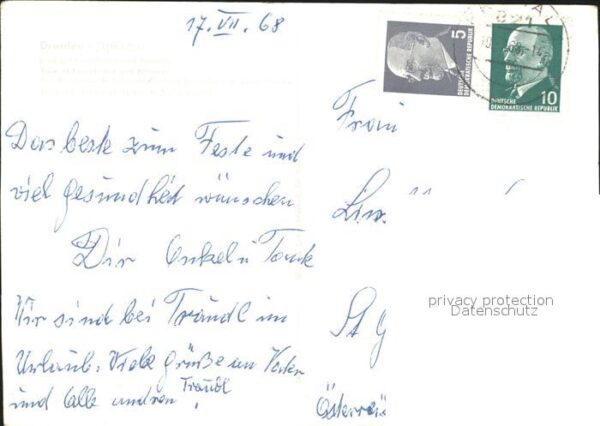 17. VII. 68
Dresden
5
DEUTSCHE
DEMOKRATISCHE REPUBLIK
10
DEUTSCHE
DEMOKRATISCHE REPUBLIK
Das beste zum Feste und
viel Gesundheit wünschen
Dir Onkel u Tante
Wir sind bei Traudl im
Urlaub. Viele Grüße an Vater
und alle andren
Traudl
Frau
St G
Österrei
privacy protection
Datenschutz